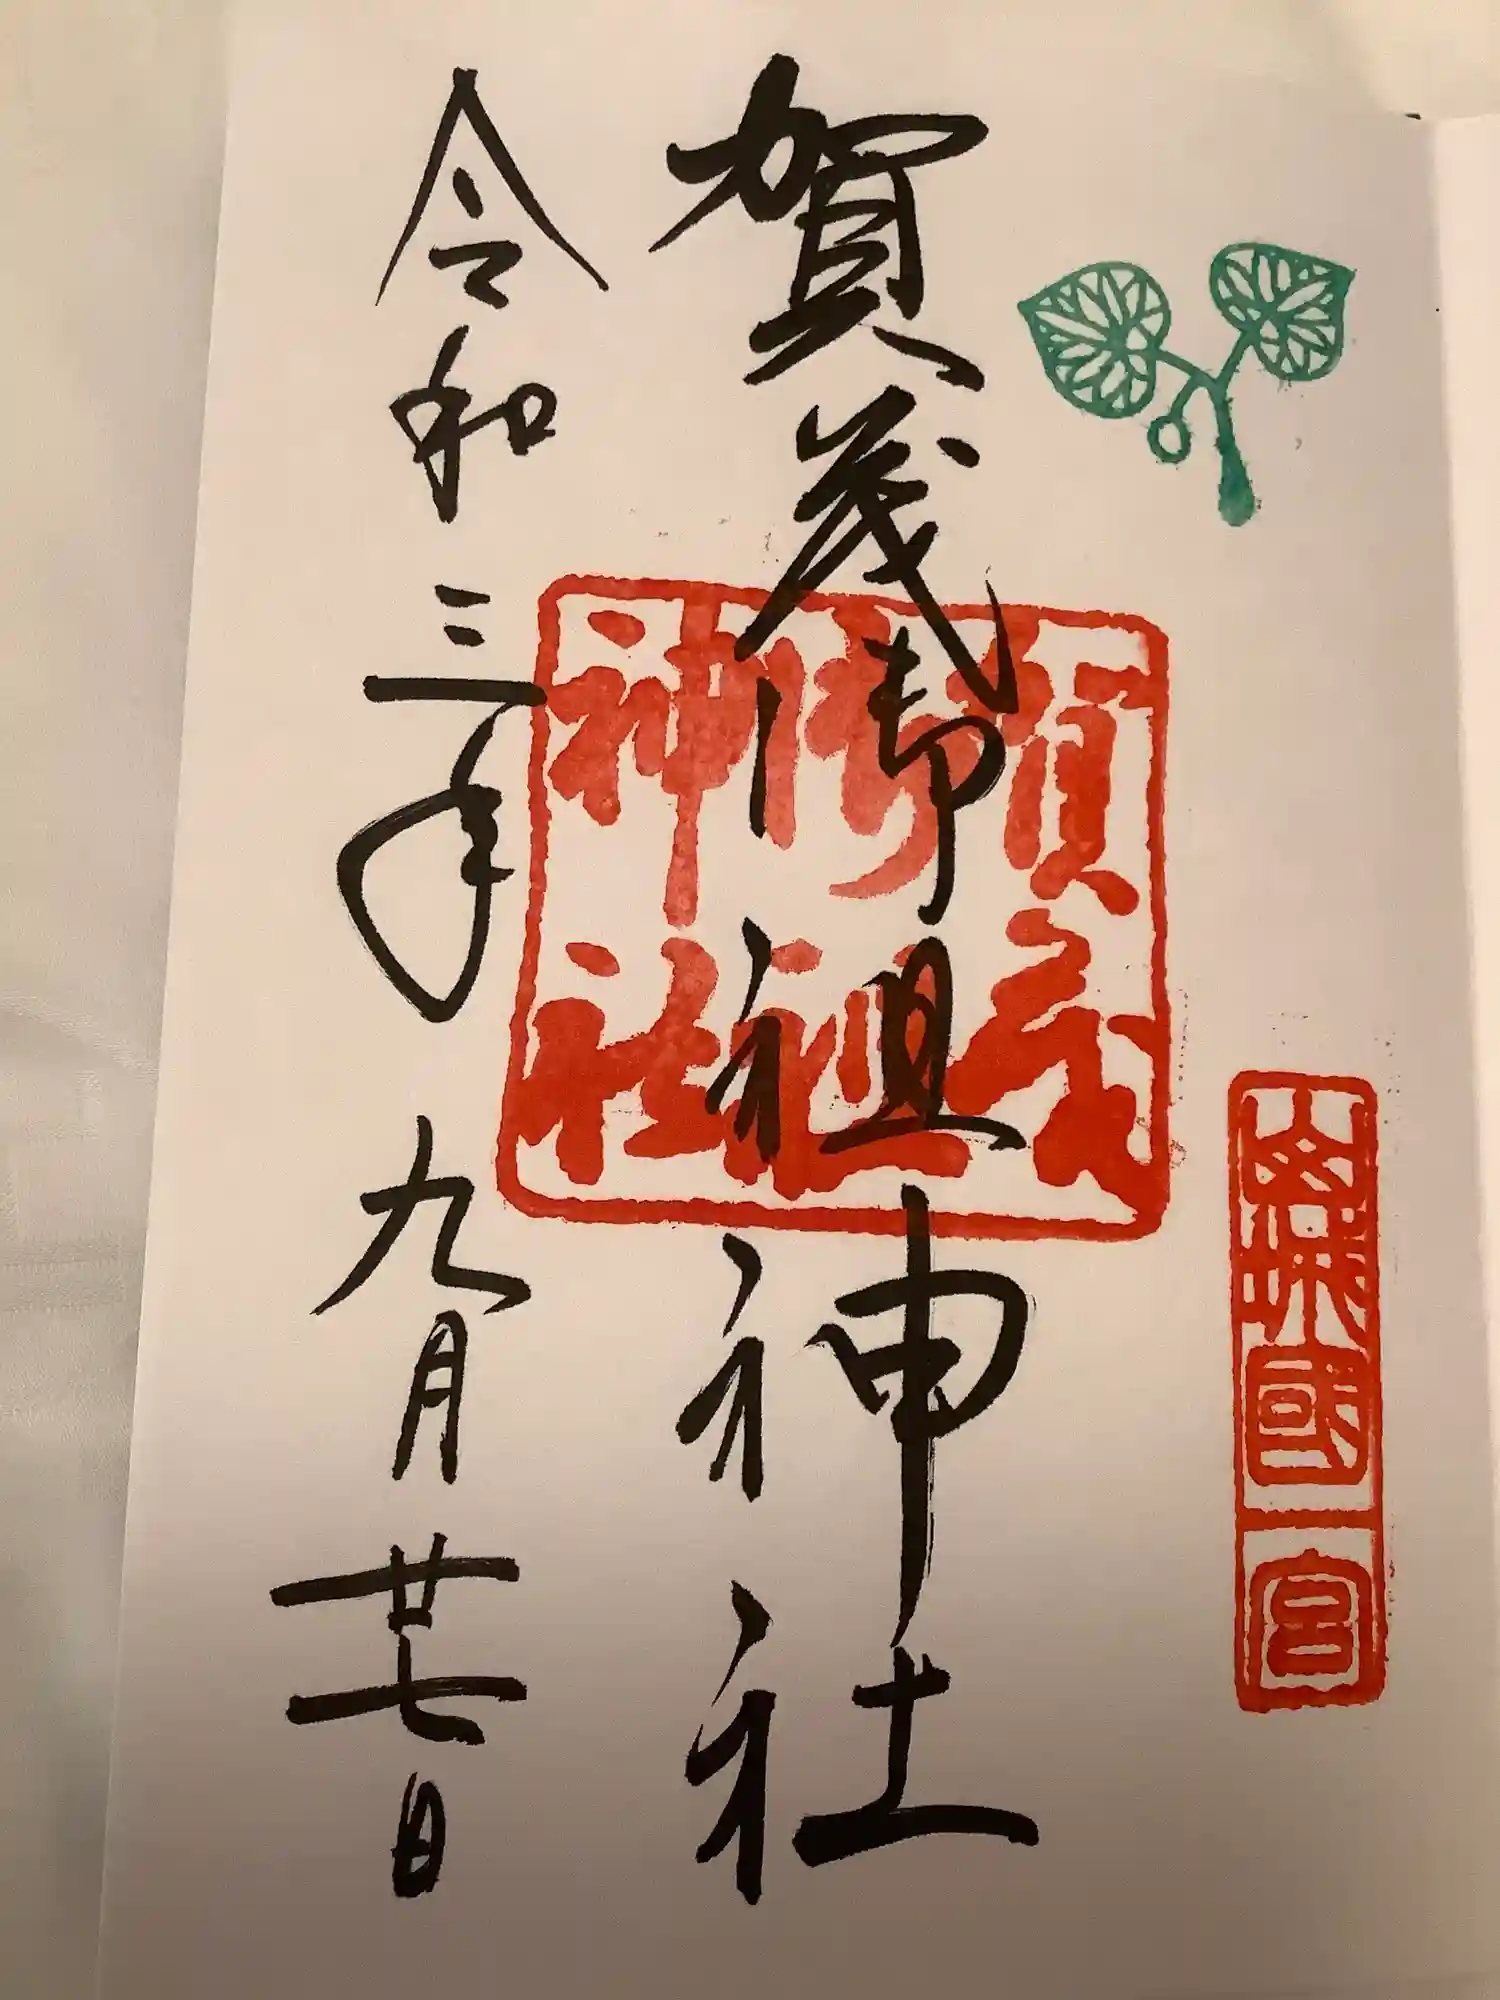 山城國一宮
賀茂御祖神社
賀茂
御祖
神社
令和三年九月廿七日